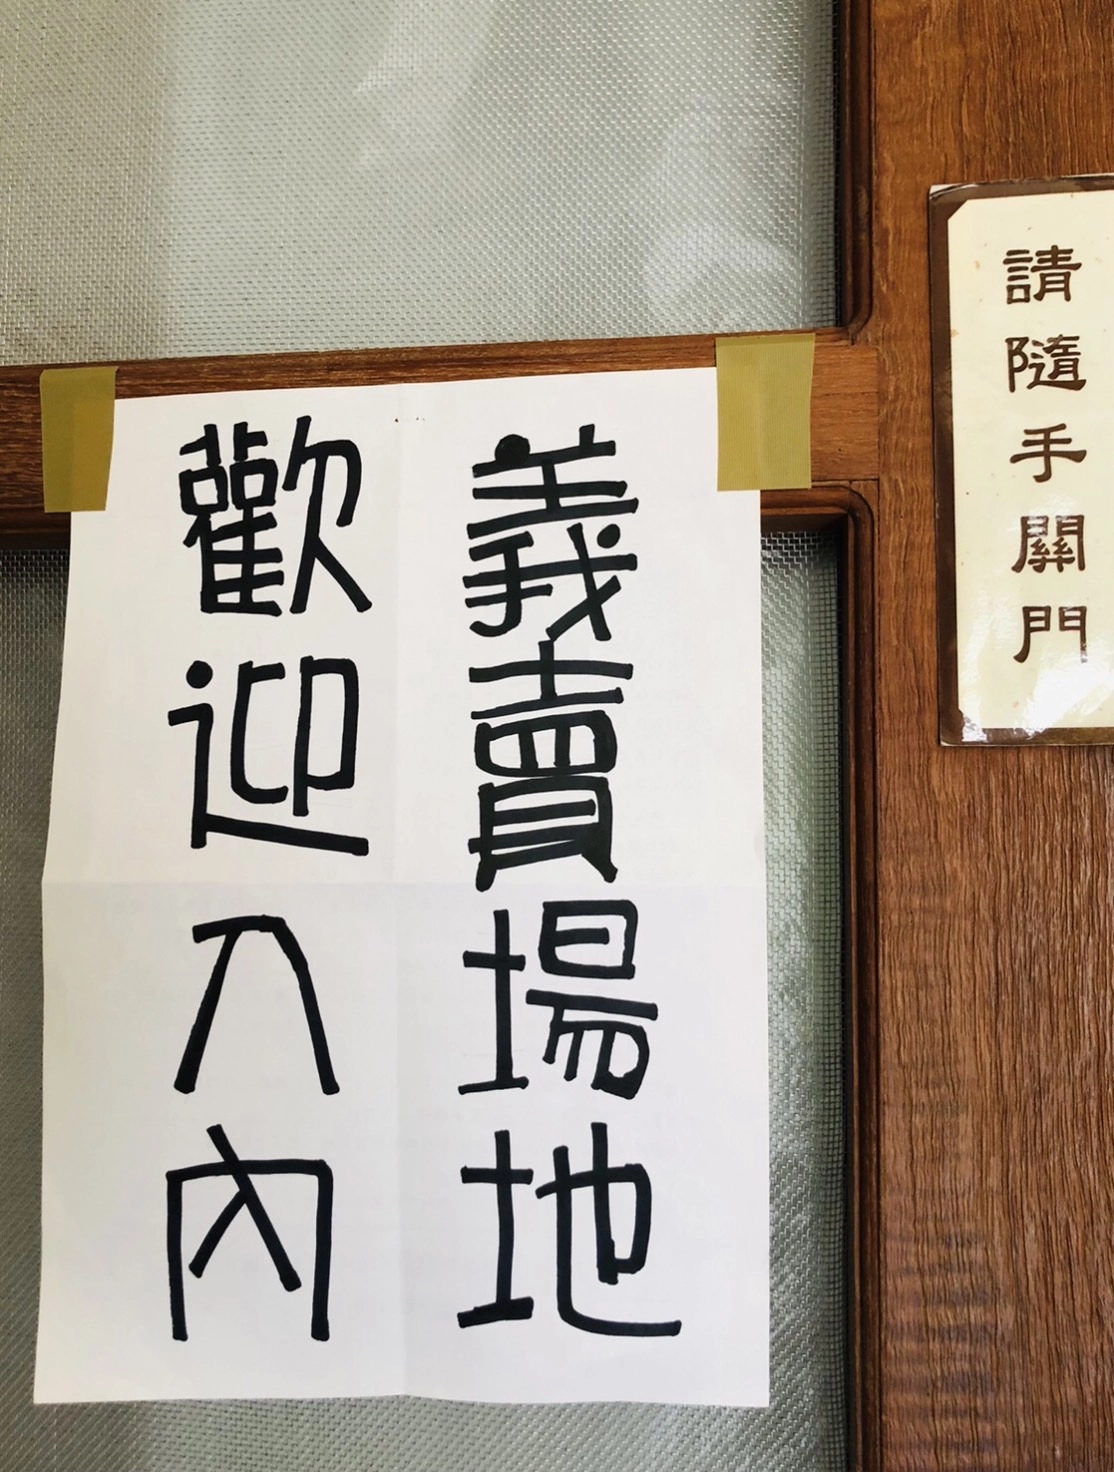 義賣場地
歡迎入內
請隨手關門